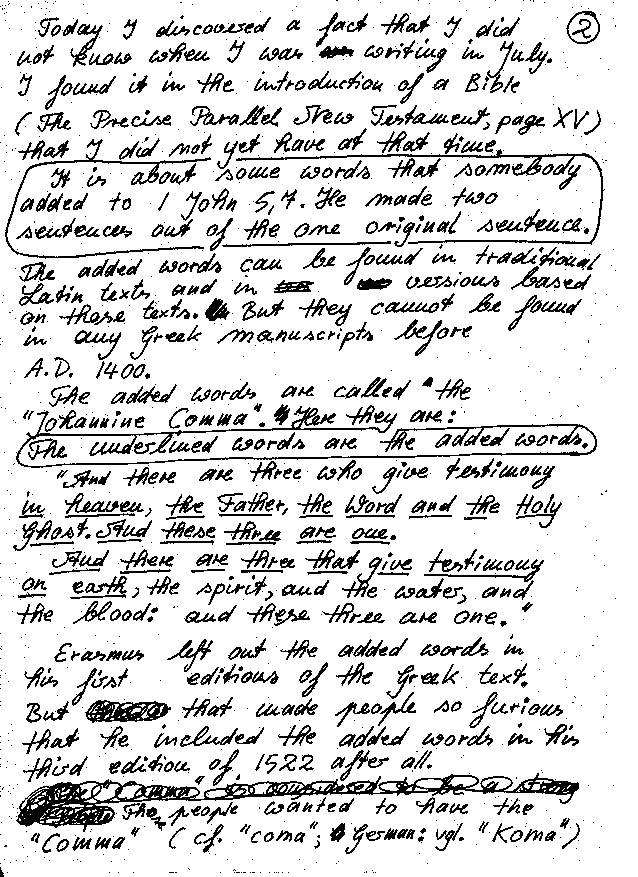 Today I discovered a fact that I did
2
not know when I was writing in July.
I found it in the introduction of a Bible
(The Precise Parallel New Testament, page XV)
that I did not yet have at that time.
It is about some words that somebody
added to 1 John 5,7. He made two
sentences out of the one original sentence.
The added words can be found in traditional
Latin texts, and in versions based
on those texts. But they cannot be found
in any Greek manuscripts before
A.D. 1400.
The added words are called "the
"Johannine Comma". Here they are:
The underlined words are the added words.
"And there are three who give testimony
in heaven, the Father, the Word and the Holy
Ghost. And these three are one.
And there are three that give testimony
on earth, the spirit, and the water, and
the blood: and these three are one."
Erasmus left out the added words in
his first editions of the Greek text.
But that made people so furious
that he included the added words in his
third edition of 1522 after all.
The "Comma" is considered to be a strong
The people wanted to have the
"Comma" (cf. "coma"; German: vgl. "Koma")